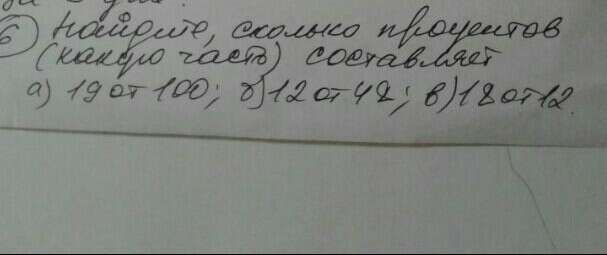 6) Найдите, сколько процентов
(какую часть) составляет
а) 19 от 100; б) 12 от 48; в) 18 от 12.